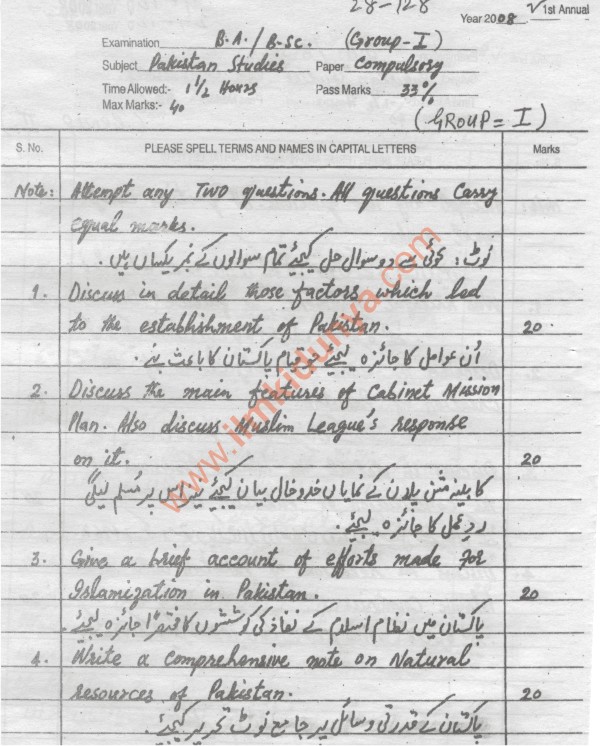 28-128
Year 2008 1st Annual
Examination B.A./B-Sc. (Group-I)
Subject Pakistan Studies Paper Compulsory
Time Allowed:- 1 1/2 Hours Pass Marks 33%
Max Marks:- 40
(GROUP = I)
S. No. PLEASE SPELL TERMS AND NAMES IN CAPITAL LETTERS Marks
Note: Attempt any TWO questions. All questions Carry
equal marks.
نوٹ: کوئی سے دو سوال حل کیجئے تمام سوالوں کے نمبر یکساں ہیں.
1. Discuss in detail those factors which led
to the establishment of Pakistan. 20.
اُن عوامل کا جائزہ لیجئے جو قیام پاکستان کا باعث بنے.
2. Discuss the main features of Cabinet Mission
Plan. Also discuss Muslim League's response
on it. 20
کابینہ مشن پلان کے نمایاں خدوخال بیان کیجئے نیز اس پر مُسلم لیگی
ردِ عمل کا جائزہ لیجئے.
3. Give a brief account of efforts made for
Islamization in Pakistan. 20
پاکستان میں نظام اسلام کے نفاذ کی کوششوں کا مختصراً جائزہ لیجیئے.
4. Write a comprehensive note on Natural
resources of Pakistan. 20
پاکستان کے قدرتی وسائل پر جامع نوٹ تحریر کیجئے.
www.ilmkidunya.com